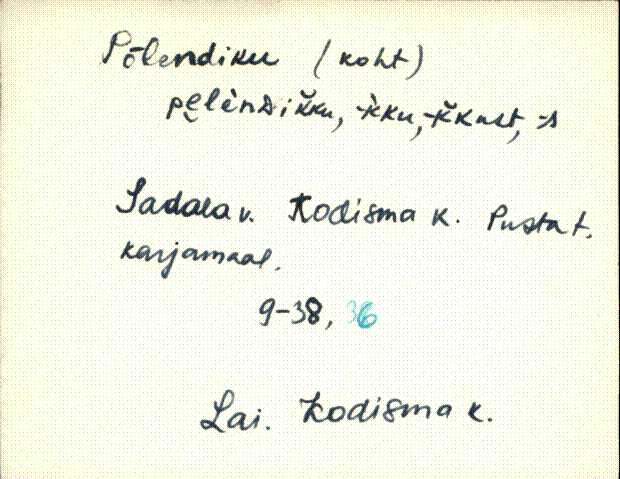 Põlendiku (koht)
pe̮lèndik̆ku, -k̀ku, -k̆kust, -s
Sadala v. Kodisma k. Pusta t.
karjamaal.
9-38, 36
Lai. Kodisma k.